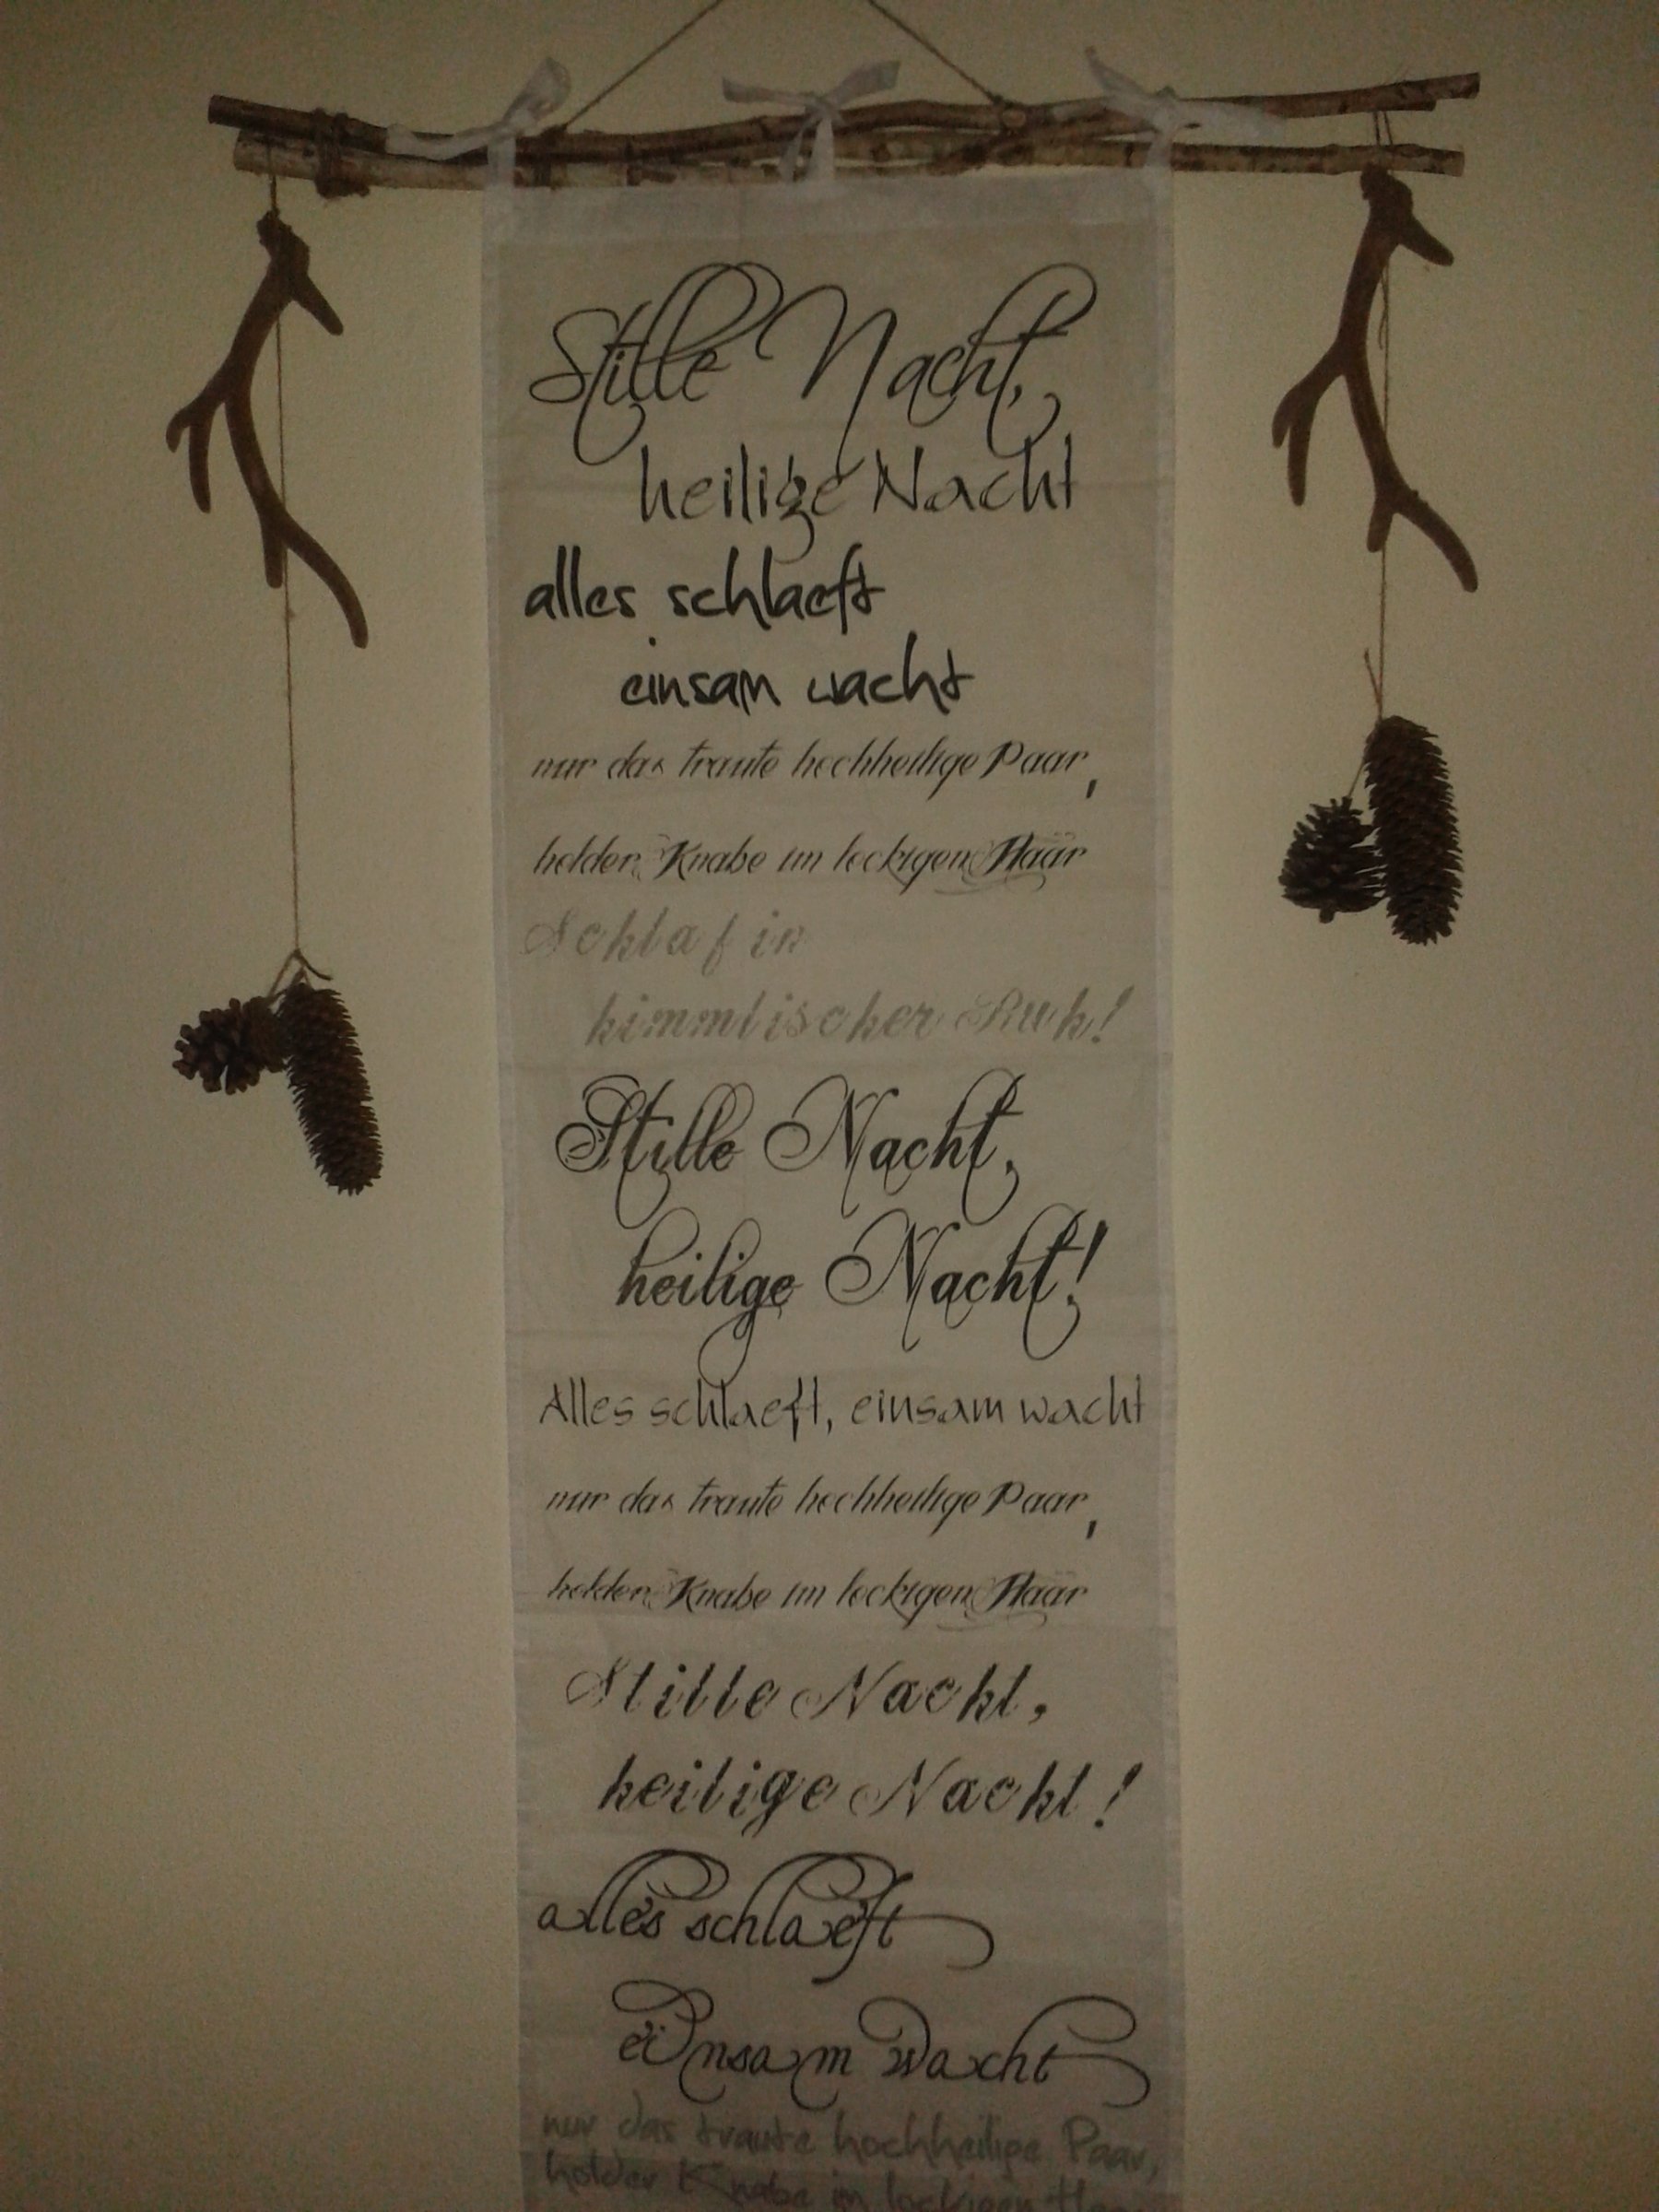 Stille Nacht,
heilige Nacht
alles schlaeft
einsam wacht
nur das traute hochheilige Paar,
holder Knabe im lockigen Haar
Schlaf in
himmlischer Ruh!
Stille Nacht,
heilige Nacht!
Alles schlaeft, einsam wacht
nur das traute hochheilige Paar,
holder Knabe im lockigen Haar
Stille Nacht,
heilige Nacht!
alles schlaeft
einsam wacht
nur das traute hochheilige Paar,
holder Knabe in lockigen